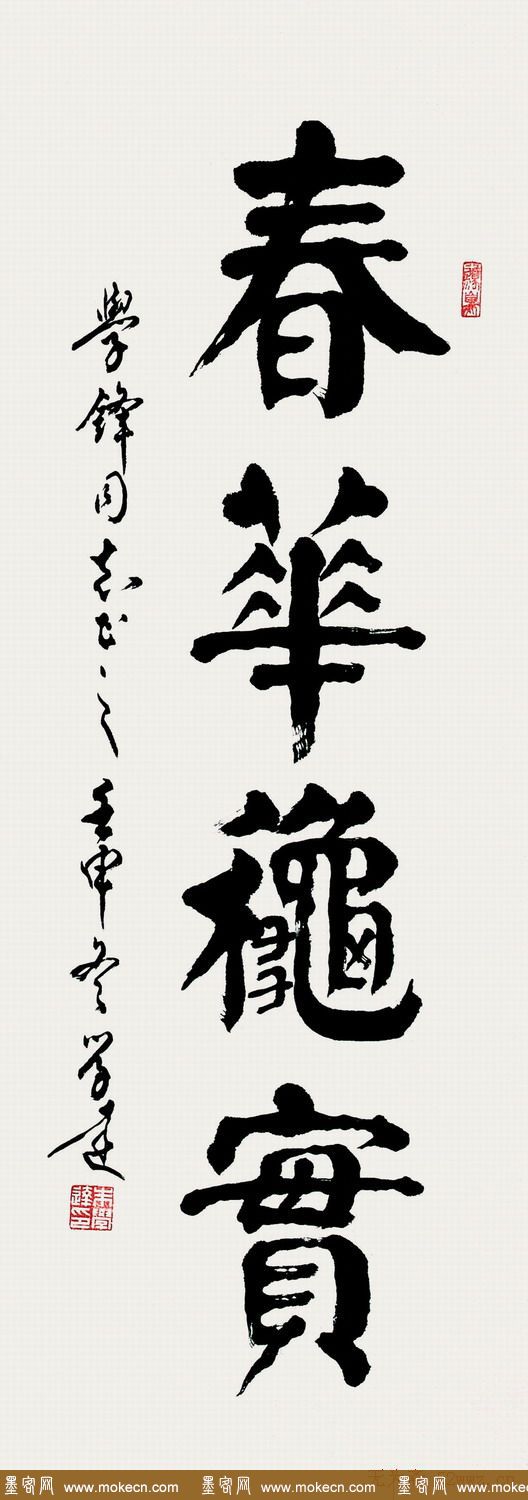 春華龝實
學鋒同志正之 壬申冬 學達
墨客网 www.mokecn.com 墨客网 www.mokecn.com 墨客网 www.mokecn.com 墨客网